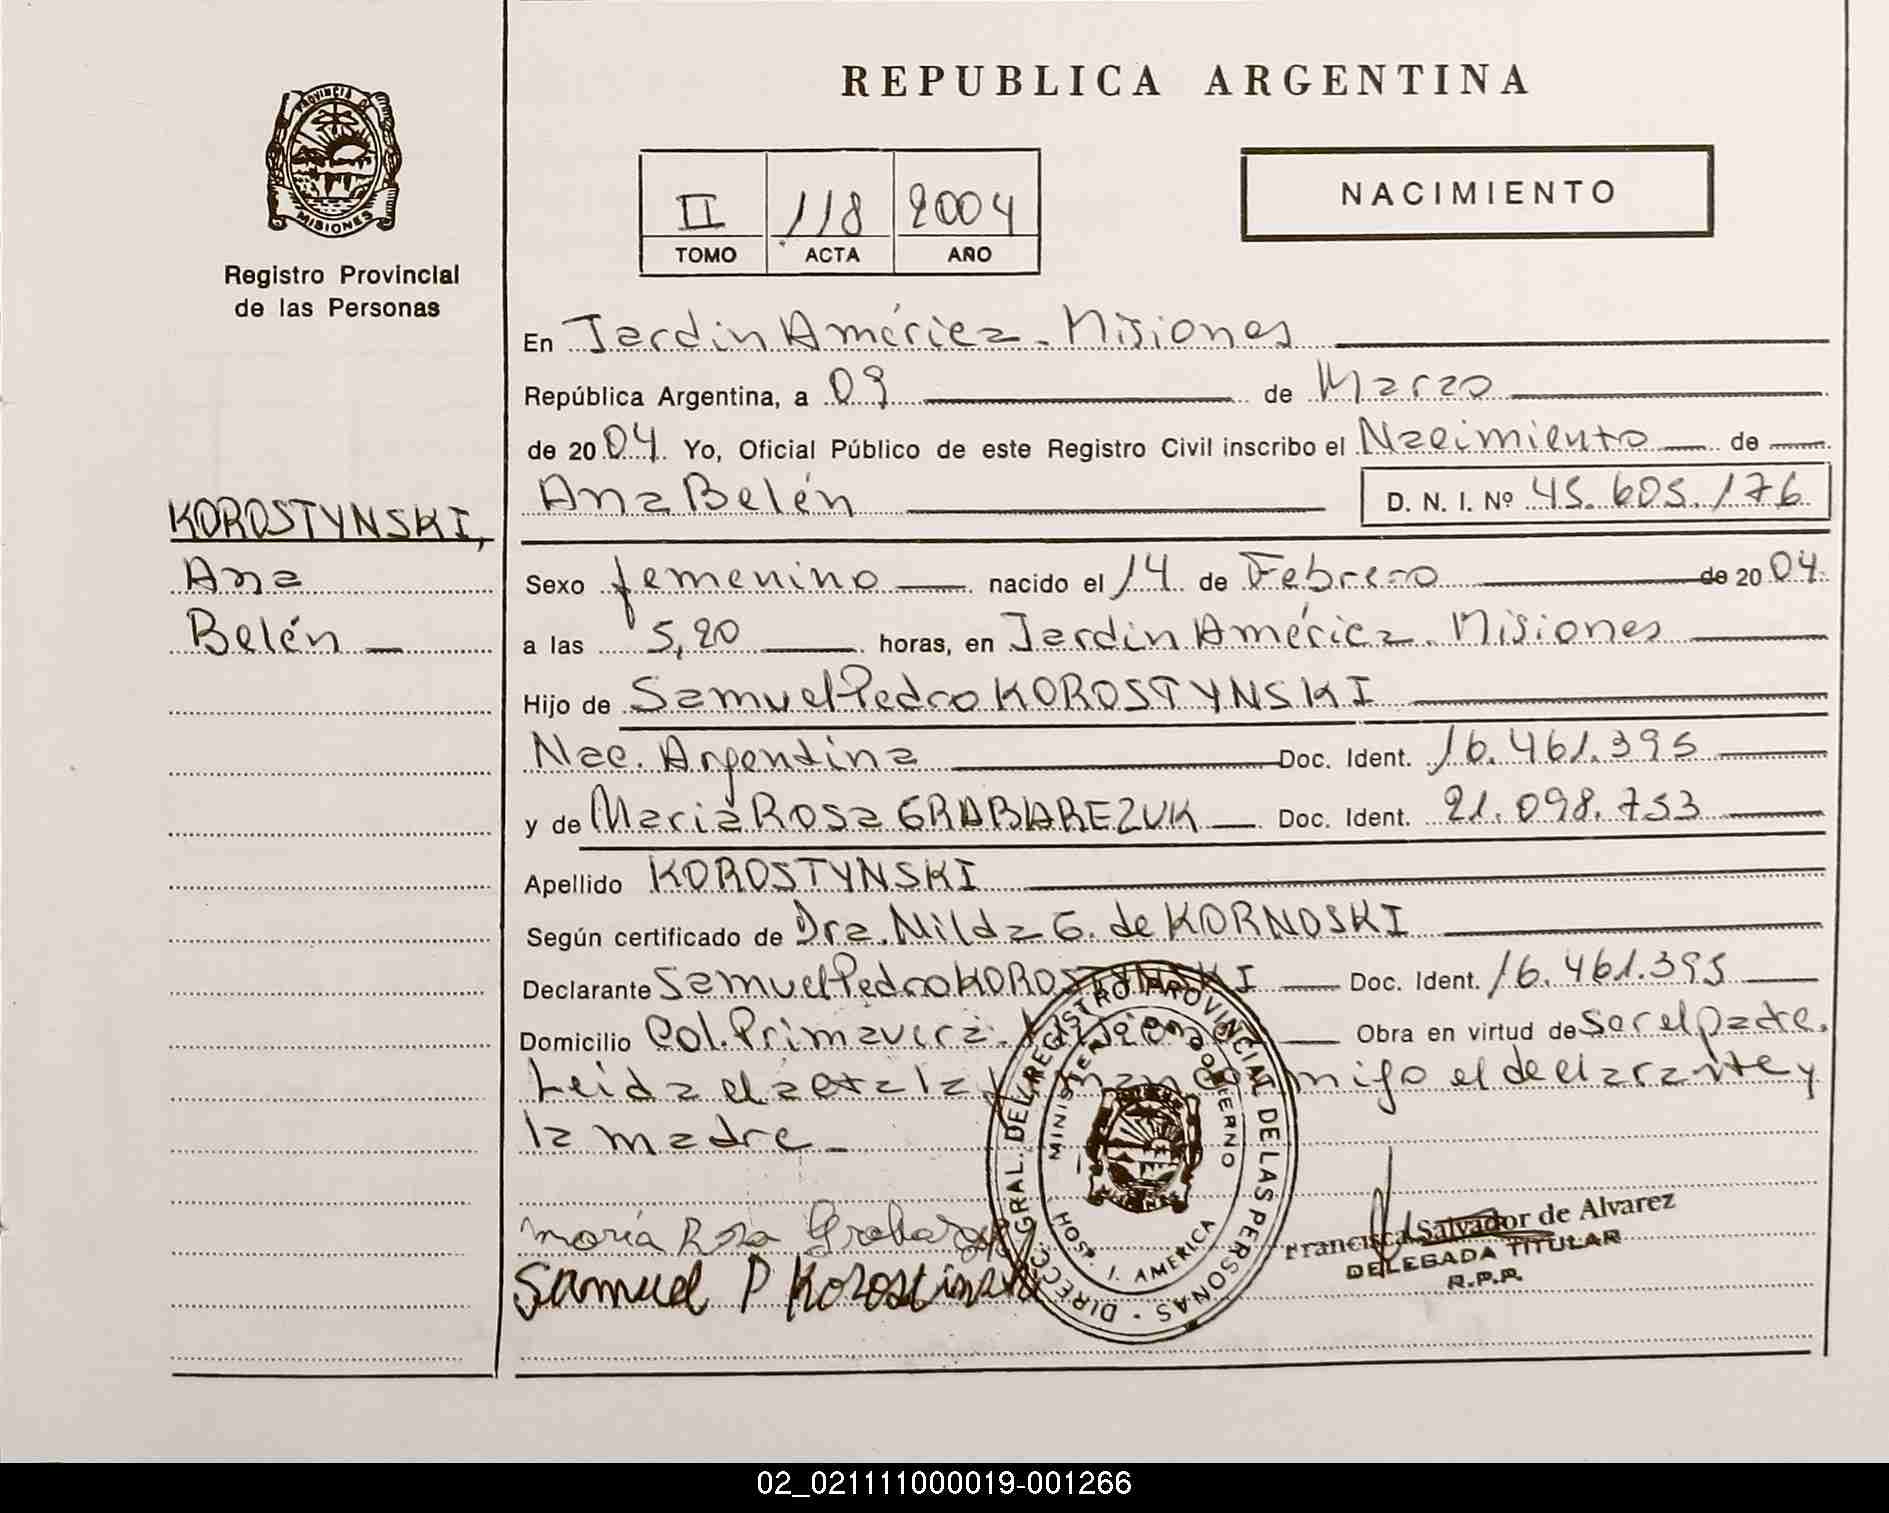 PROVINCIA DE
MISIONES
Registro Provincial
de las Personas
KOROSTYNSKI,
Ana
Belén
REPUBLICA ARGENTINA
II 118 2004
TOMO ACTA AÑO
NACIMIENTO
En Jardín América - Misiones
República Argentina, a 09 de Marzo
de 2004 Yo, Oficial Público de este Registro Civil inscribo el Nacimiento de
Ana Belén D. N. I. Nº 45.605.176
Sexo femenino nacido el 14 de Febrero de 2004
a las 5,20 horas, en Jardín América - Misiones
Hijo de Samuel Pedro KOROSTYNSKI
Nac. Argentina Doc. Ident. 16.461.395
y de María Rosa GRABIAREZUK Doc. Ident. 21.098.753
Apellido KOROSTYNSKI
Según certificado de Dra. Nilda G. de KORNOSKI
Declarante Samuel Pedro KOROSTYNSKI Doc. Ident. 16.461.395
Domicilio Col. Primavera - Misiones Obra en virtud de ser el padre.
Leida el acta la firman conmigo el declarante y
la madre -
María Rosa
Samuel P Korostinski
DIRECC. GRAL. DEL REGISTRO PROVINCIAL DE LAS PERSONAS
MINISTERIO DE GOBIERNO
HOSP. J. AMERICA
Francisca Salvador de Alvarez
DELEGADA TITULAR
R.P.P.
02_021111000019-001266